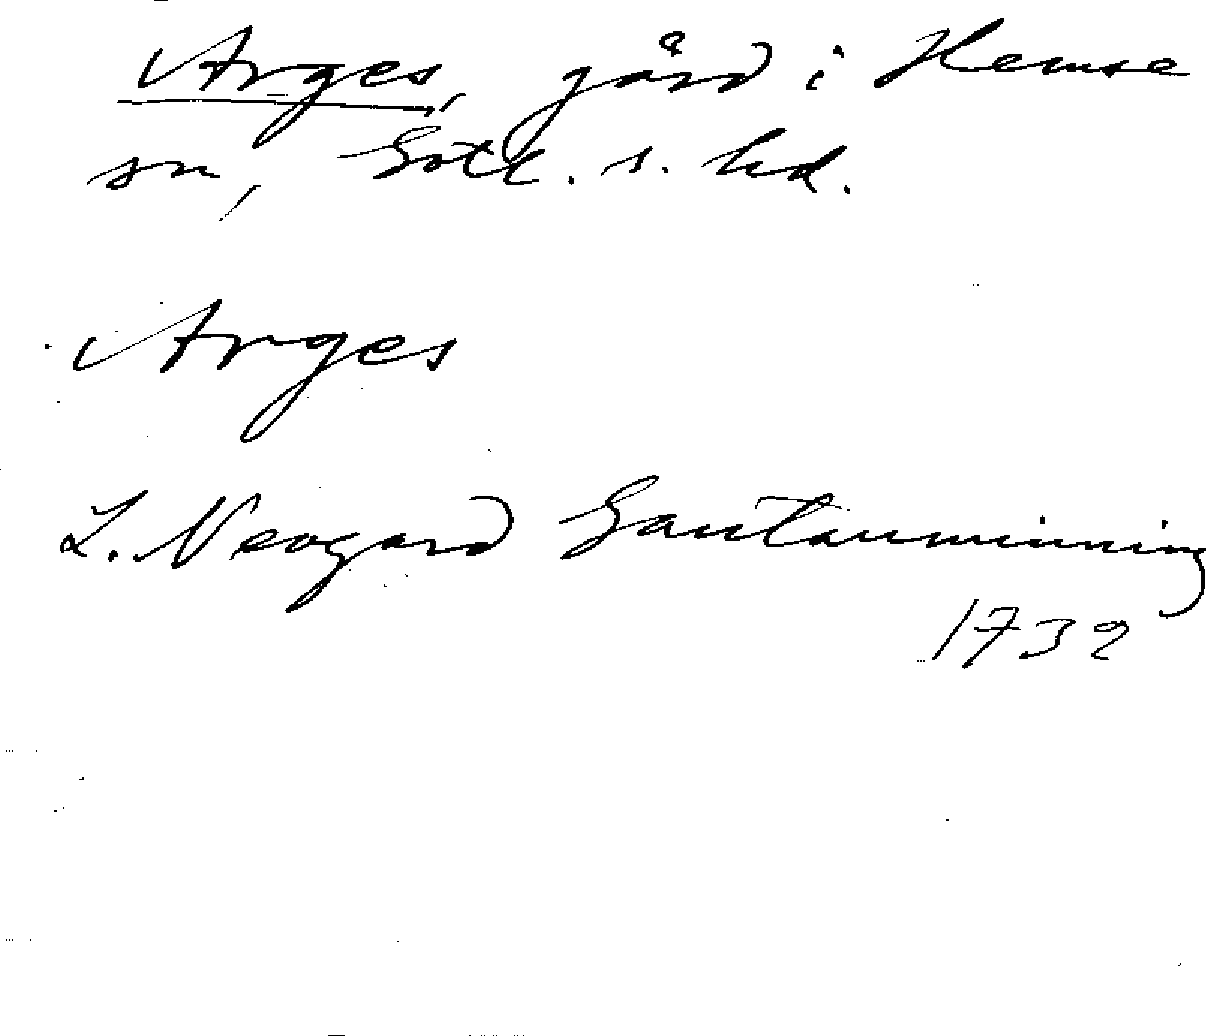 Arges, gård i Hemse
sn, Gotl. s. hd.
Arges
L. Neogard Gautauminning
1732